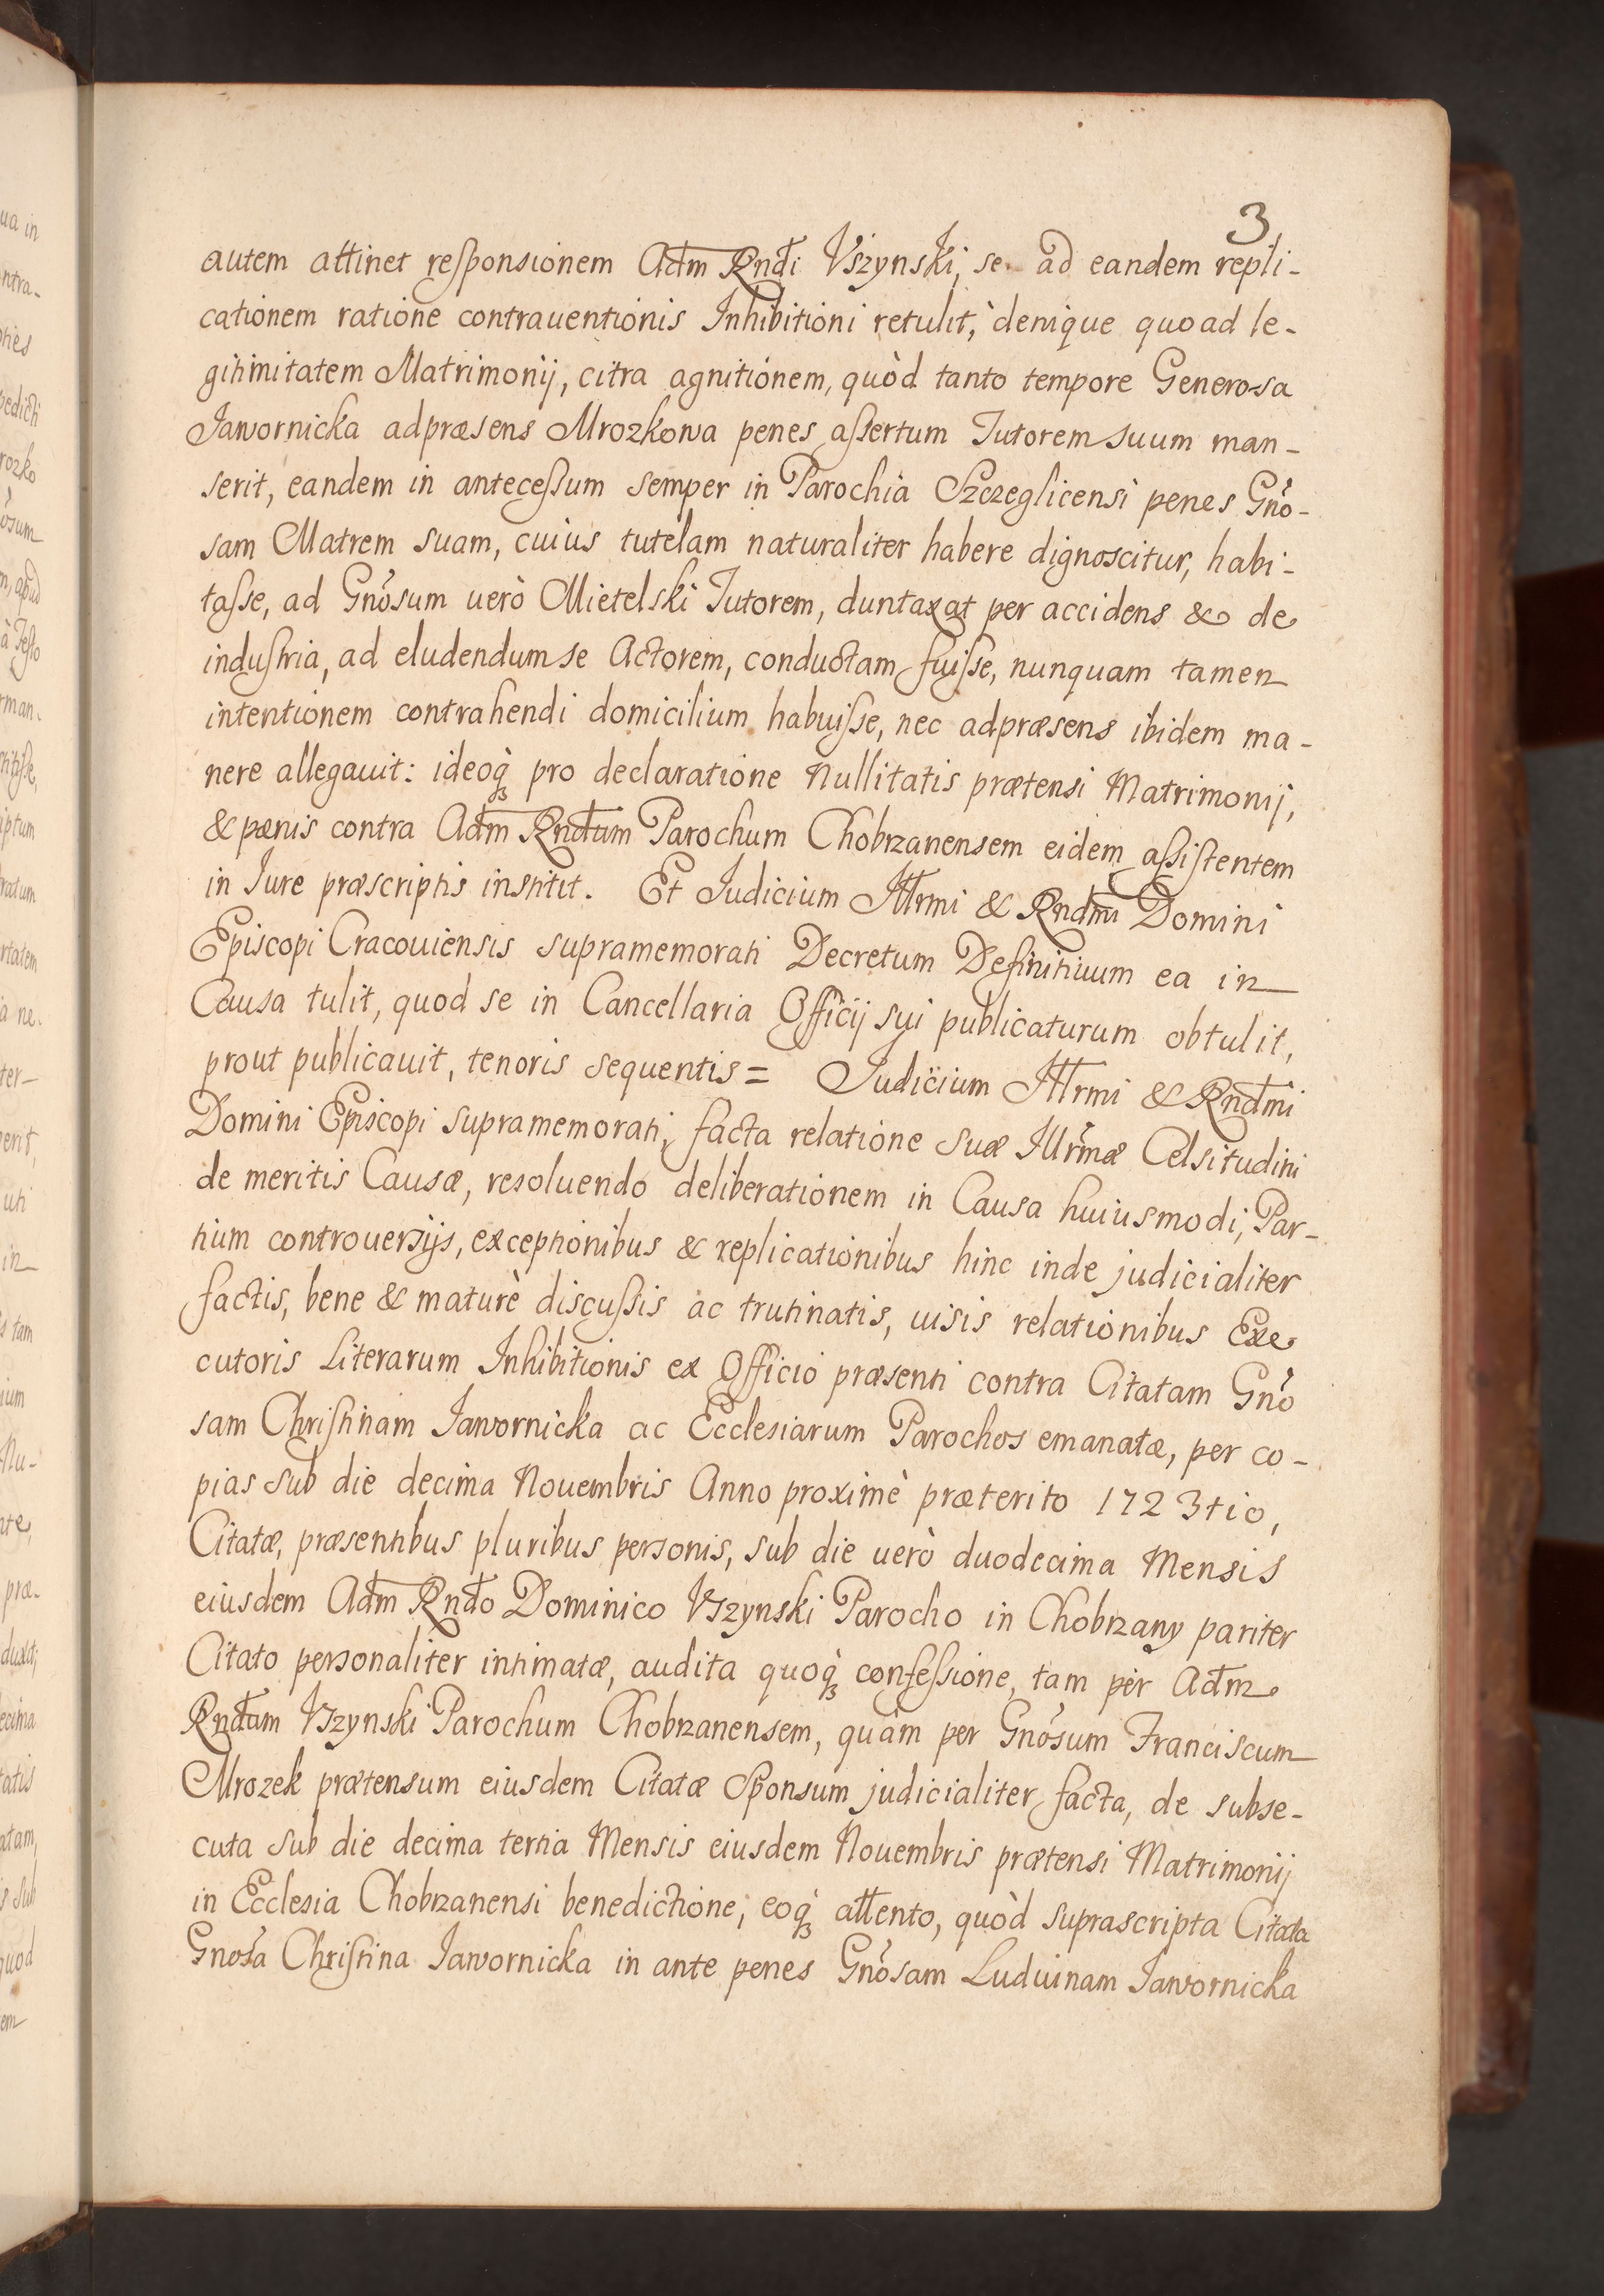 3
autem attinet responsionem Adm Rndi Vszynski, se ad eandem repli-
cationem ratione contrauentionis Inhibitioni retulit, denique quoad le-
gitimitatem Matrimonij, citra agnitionem, quòd tanto tempore Generosa
Jawornicka adpræsens Mrozkowa penes assertum Tutorem suum man-
serit, eandem in antecessum semper in Parochia Szczeglicensi penes Gnō-
sam Matrem suam, cuius tutelam naturaliter habere dignoscitur, habi-
tasse, ad Gnōsum uerò Mietelski Tutorem, duntaxat per accidens & de
industria, ad eludendum se Actorem, conductam fuisse, nunquam tamen
intentionem contrahendi domicilium habuisse, nec adpræsens ibidem ma-
nere allegauit: ideoq; pro declaratione Nullitatis prætensi Matrimonij,
& pænis contra Adm Rndum Parochum Chobrzanensem eidem assistentem
in Jure præscriptis institit. Et Judicium Illrmi & Rndmi Domini
Episcopi Cracouiensis supramemorati Decretum Definitiuum ea in
Causa tulit, quod se in Cancellaria Officij sui publicaturum obtulit,
prout publicauit, tenoris sequentis = Judicium Illrmi & Rndmi
Domini Episcopi supramemorati, facta relatione suæ Illrmæ Celsitudini
de meritis Causæ, resoluendo deliberationem in Causa huiusmodi, Par-
tium controuersijs, exceptionibus & replicationibus hinc inde judicialiter
factis, bene & maturè discussis ac trutinatis, uisis relationibus Exe
cutoris Literarum Inhibitionis ex Officio præsenti contra Citatam Gnō
sam Christinam Jawornicka ac Ecclesiarum Parochos emanatæ, per co-
pias sub die decima Nouembris Anno proximè præterito 1723tio,
Citatæ, præsentibus pluribus personis, sub die uerò duodecima Mensis
eiusdem Adm Rndo Dominico Vszynski Parocho in Chobrzany pariter
Citato personaliter intimatæ, audita quoq; confessione, tam per Adm
Rndum Vszynski Parochum Chobrzanensem, quàm per Gnōsum Franciscum
Mrozek prætensum eiusdem Citatæ Sponsum judicialiter facta, de subse-
cuta sub die decima tertia Mensis eiusdem Nouembris prætensi Matrimonij
in Ecclesia Chobrzanensi benedictione; eoq; attento, quòd suprascripta Citata
Gnosa Christina Jawornicka in ante penes Gnōsam Luduinam Jawornicka